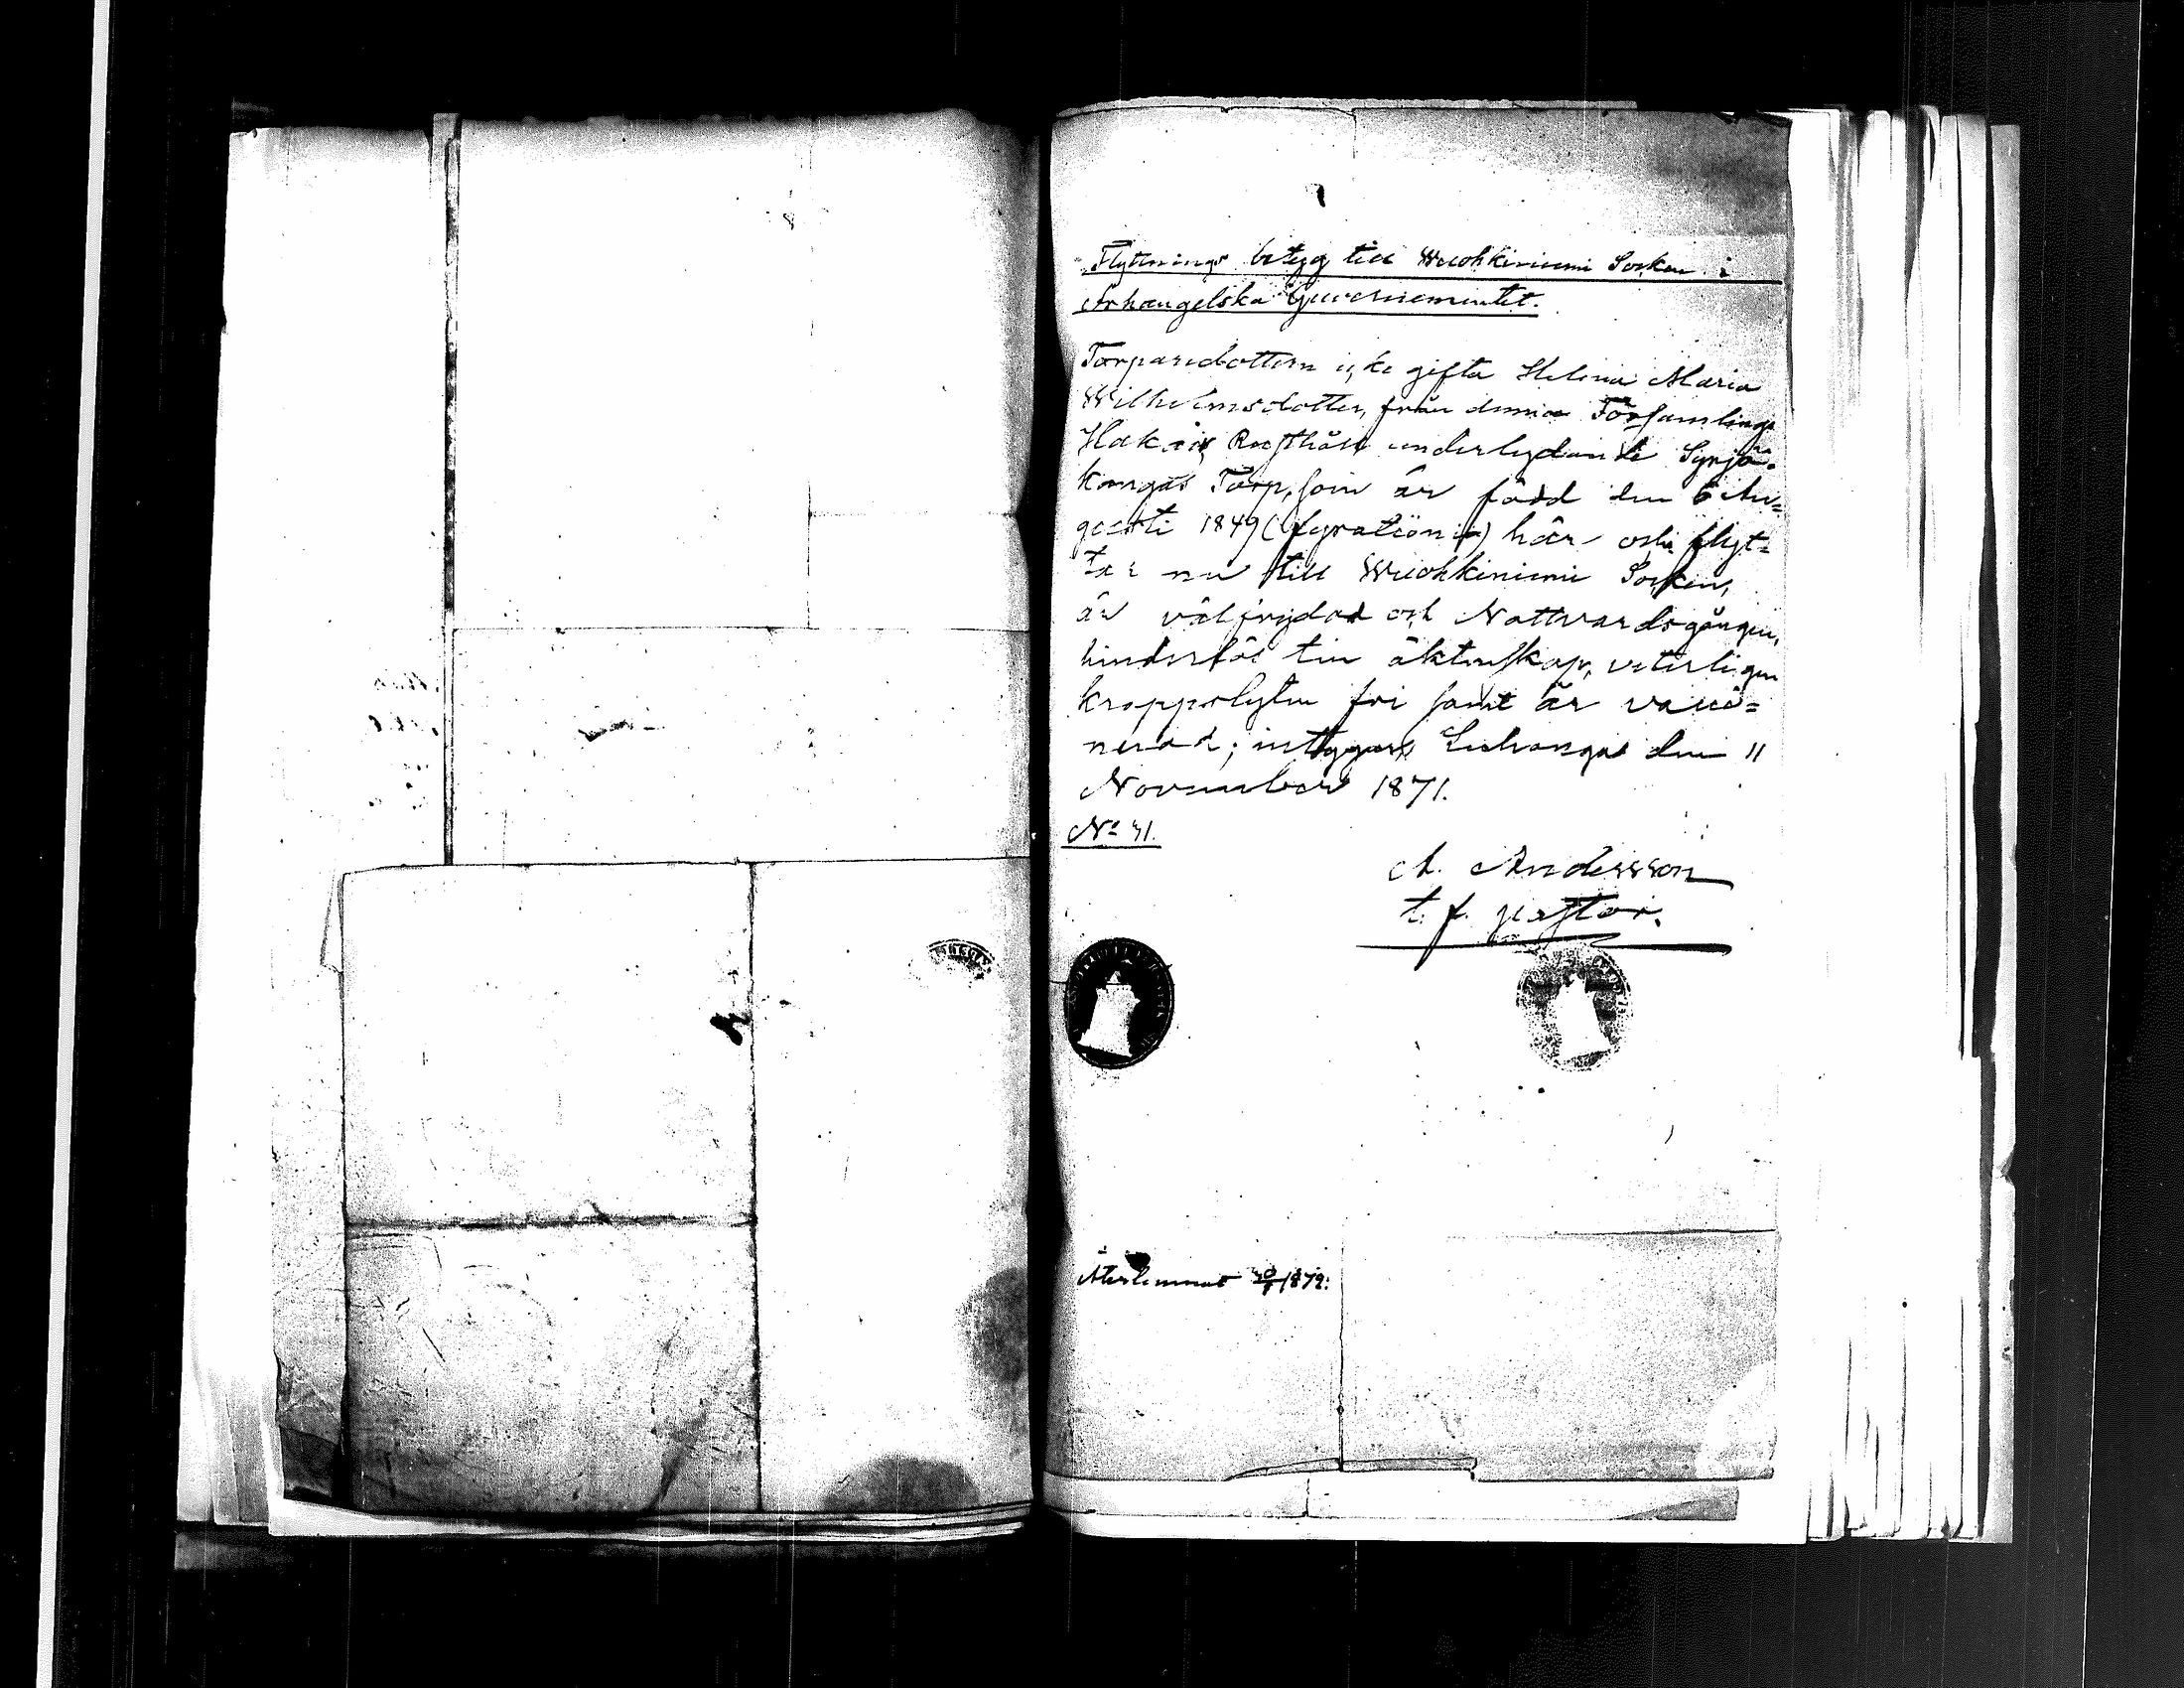 Flyttnings betyg till Wuohkiniemi Socken i
Arhangelska Guvernementet.
Torparedottern icke gifta Helena Maria
Wilhelmsdotter, från denna Församlings
Rusthåll underlydande Syrjä-
kangas Torp, som är född den 6 Au=
gusti 1849 (fyrationio) här och flyt=
tar nu till Wuohkiniemi Socken,
är välfrejdad och Nattvardsgången,
hinderlös till äktenskap, veterligen
kroppslyten fri samt är vacci=
nerad; intygar, Luhanga den 11
November 1871.
No 41.
A. Andersson
t. f. pastor.
Återlemnat 1872.